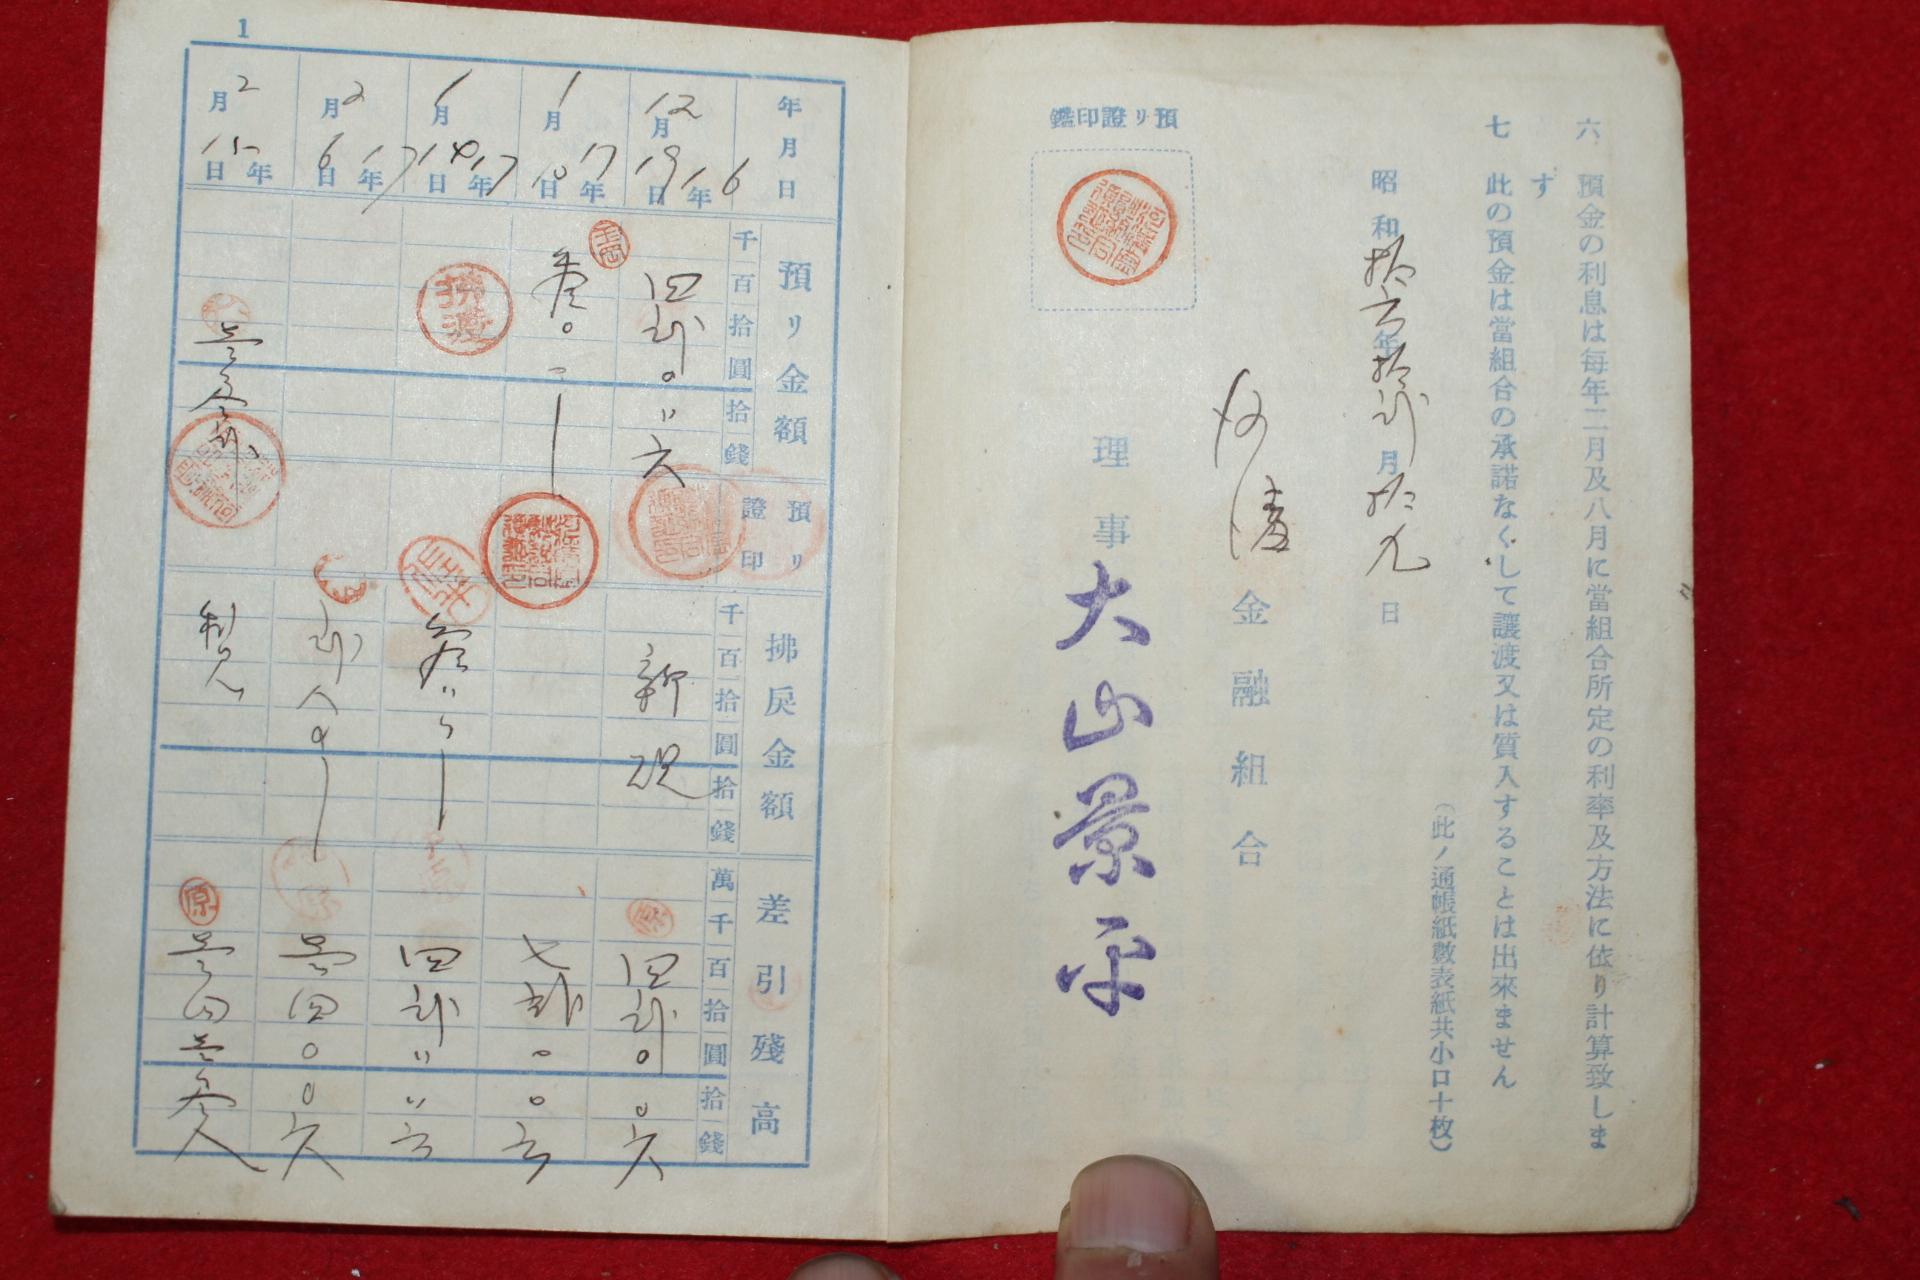 六 預金の利息は每年二月及八月に當組合所定の利率及方法に依り計算致しま
す
七 此の預金は當組合の承諾なくして讓渡又は質入することは出來ません
(此ノ通帳紙數表紙共小口十枚)
昭和拾六年拾弐月拾九日
金融組合
理事 大山景平
預リ證印鑑
1
年月日
預リ金額
千百拾圓拾錢
預リ證印
拂戾金額
千百拾圓拾錢
差引殘高
萬千百拾圓拾錢
16年12月19日
四弐〇〃六
新規
四弐〇〇六
17年1月10日
七弐〃〇六
17年1月14日
拂渡
四弐〃〃六
17年2月6日
壹四〇〇六
年2月15日
利息
原